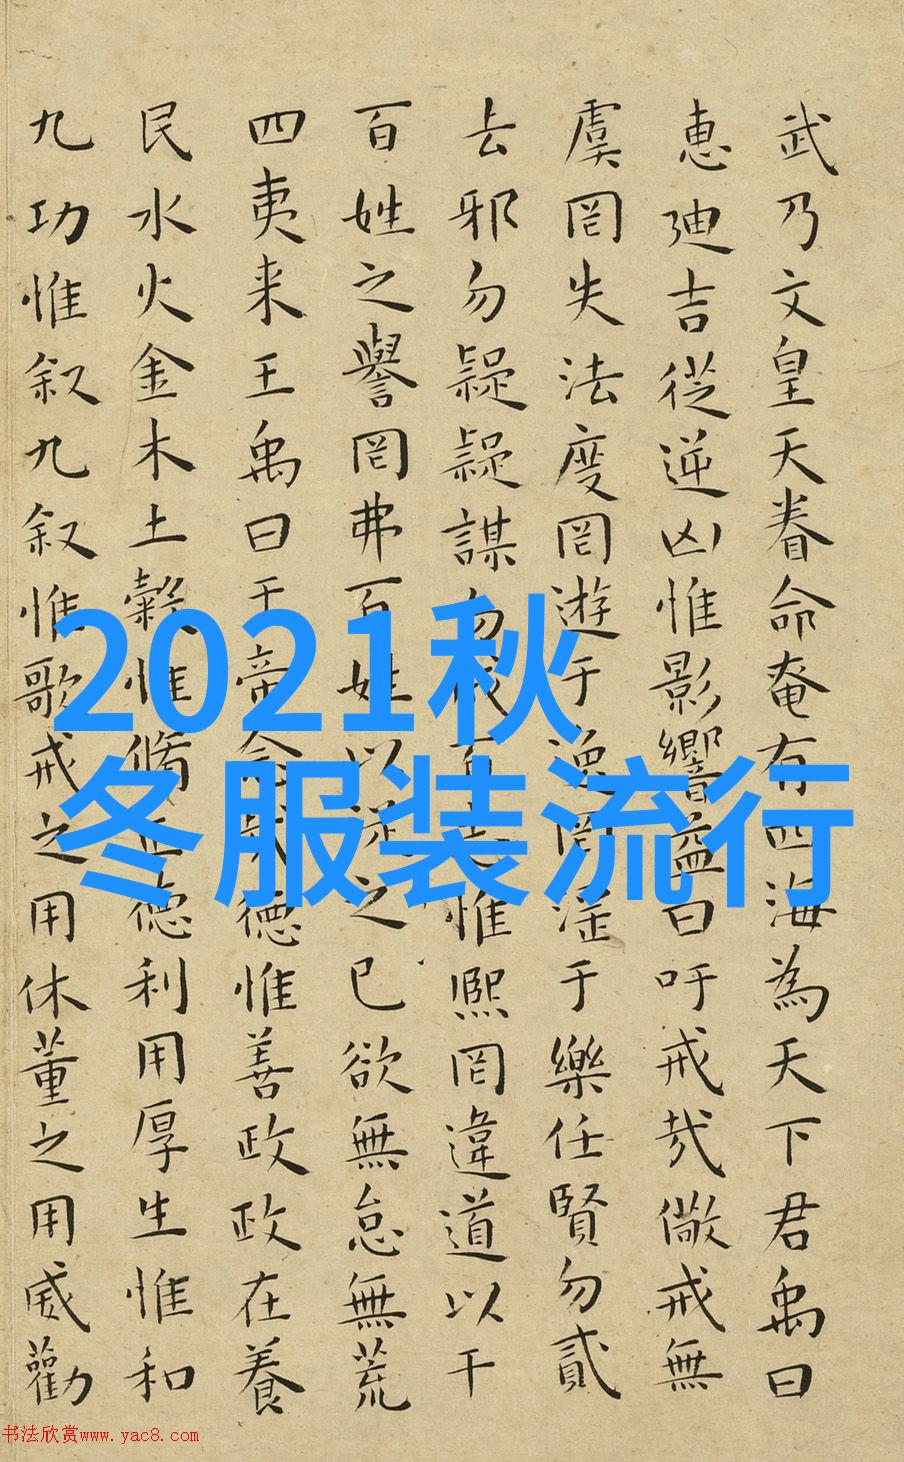 武乃文皇天眷命奄有四海為天下君禹曰
惠迪吉從逆凶惟影響益曰吁戒哉儆戒無
虞罔失法度罔遊于逸罔淫于樂任賢勿貳
去邪勿疑疑謀勿成百志惟熙罔違道以干
百姓之譽罔弗百姓以從之已欲無怠無荒
四夷来王禹曰于帝念哉德惟善政政在養
民水火金木土穀惟脩正德利用厚生惟和
九功惟叙九叙惟歌戒之用休董之用威勸
2021秋
冬服装流行
书法欣赏www.yac8.com